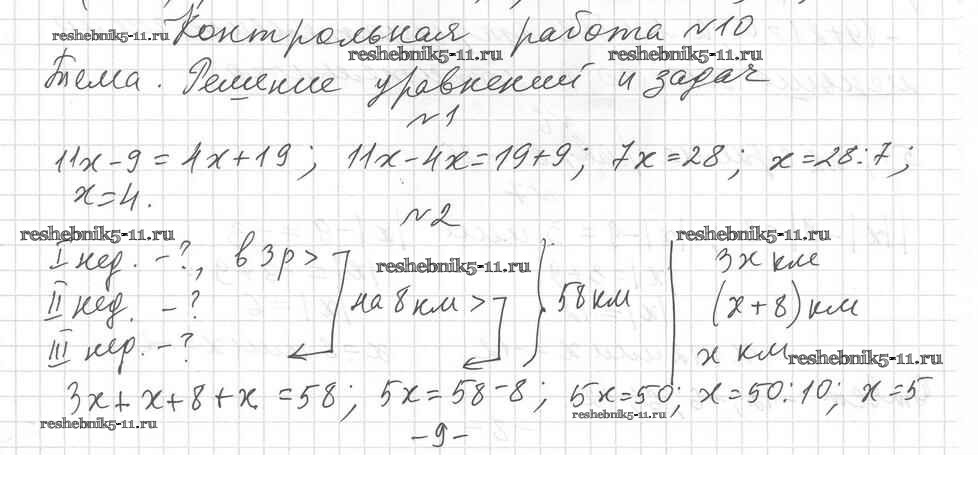 Контрольная работа №10
Тема. Решение уравнений и задач
№1
11x-9=4x+19; 11x-4x=19+9; 7x=28; x=28:7;
x=4.
№2
I нед. -?, в 3р> 3x км
II нед. -? на 8км> 58км (x+8)км
III нед. -? x км
3x+x+8+x=58; 5x=58-8; 5x=50; x=50:10; x=5
-9-
reshebnik5-11.ru
reshebnik5-11.ru
reshebnik5-11.ru
reshebnik5-11.ru
reshebnik5-11.ru
reshebnik5-11.ru
reshebnik5-11.ru
reshebnik5-11.ru
reshebnik5-11.ru